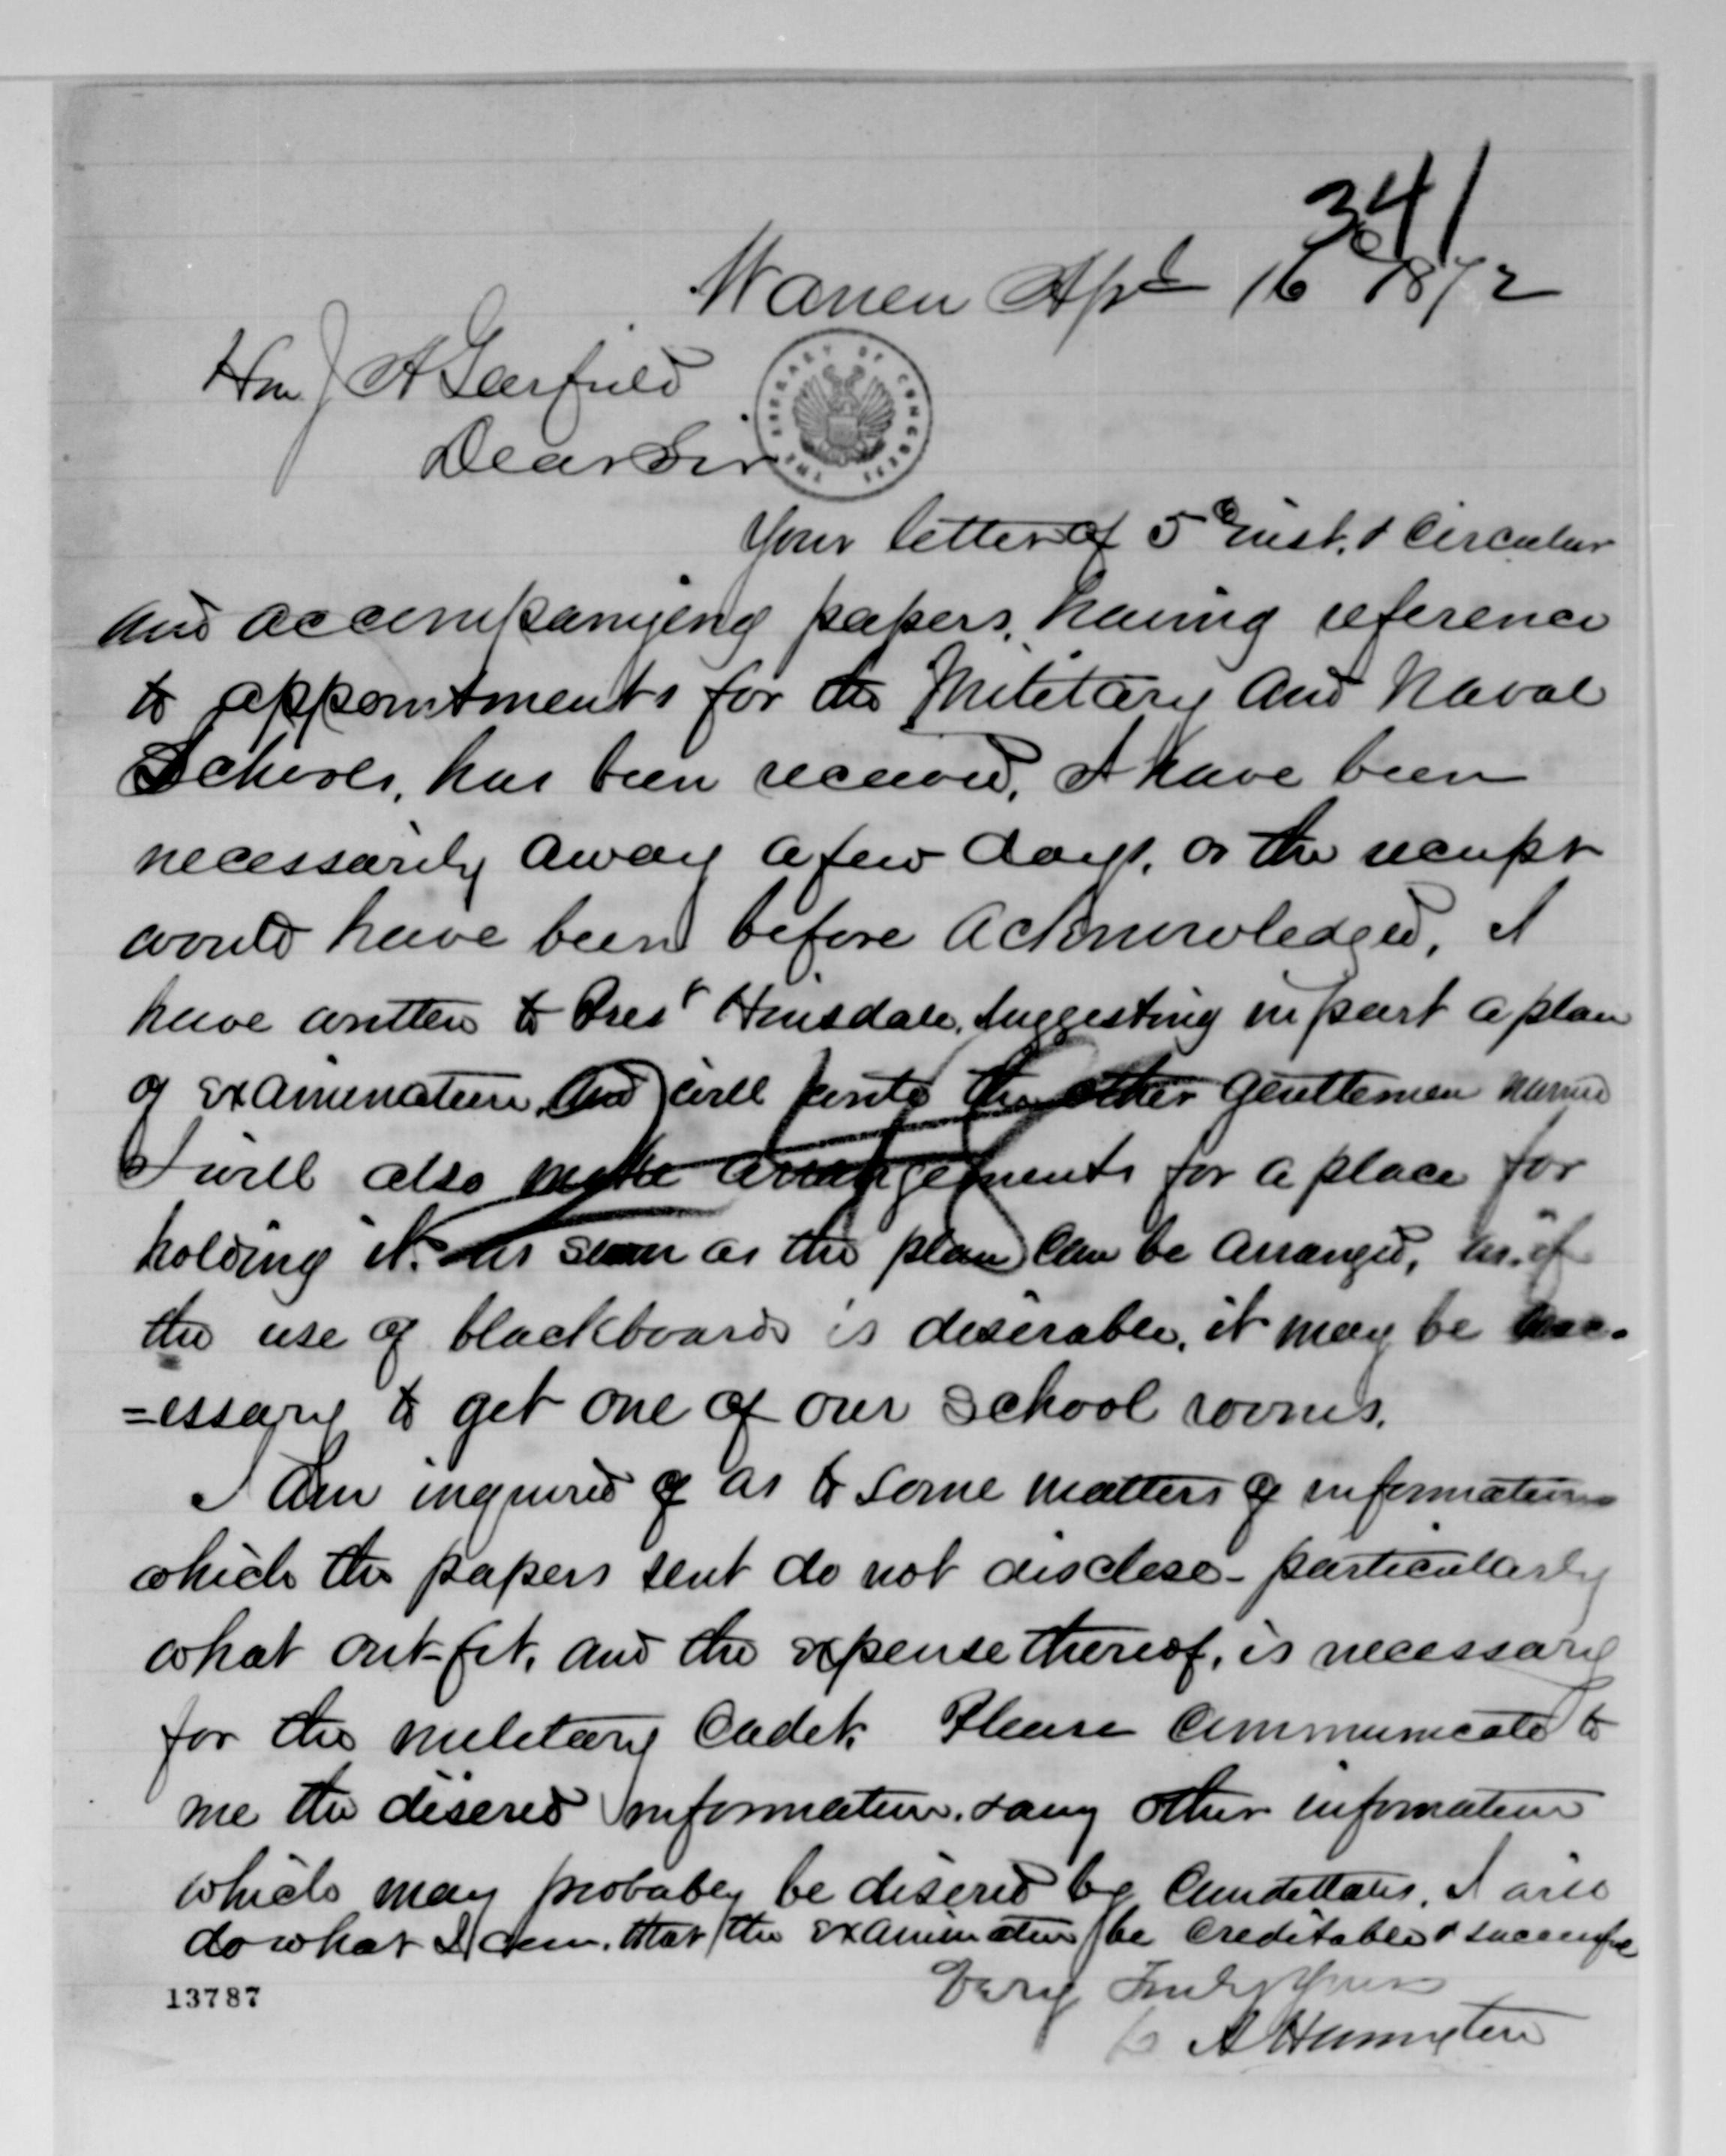 341
Warren Apl 16 1872
Hon J A Garfield
Dear Sir
THE LIBRARY OF CONGRESS
Your letter of 5th inst. & Circular
and accompanying papers, having reference
to appointments for the Military and Naval
Schools, has been received, I have been
necessarily away a few days, or the receipt
would have been before acknowledged, I
have written to Prest Hinsdale, suggesting in part a plan
of examination, and will write the other gentlemen named
I will also make arrangements for a place for
holding it. as soon as the plan can be arranged, as, if
the use of blackboards is desirable, it may be nec-
=essary to get one of our School rooms.
I am inquired of as to some matters of information
which the papers sent do not disclose - particullarly
what out-fit, and the expense thereof, is necessary
for the military Cadet. Please communicate to
me the disered information, & any other information
which may probabley be disered by Candidates, I will
do what I can, that the examination be creditable & successful
Very Truly Yours
A Harrington
13787